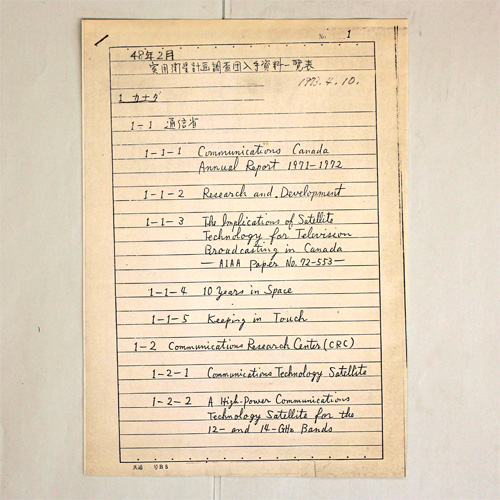 No. 1
48年2月
実用衛星計画調査団入手資料一覧表
1973.4.10.
1 カナダ
1-1 通信省
1-1-1 Communications Canada
Annual Report 1971-1972
1-1-2 Research and Development
1-1-3 The Implications of Satellite
Technology for Television
Broadcasting in Canada
— AIAA Paper No. 72-553 —
1-1-4 10 Years in Space
1-1-5 Keeping in Touch
1-2 Communications Research Center (CRC)
1-2-1 Communications Technology Satellite
1-2-2 A High-Power Communications
Technology Satellite for the
12- and 14-GHz Bands